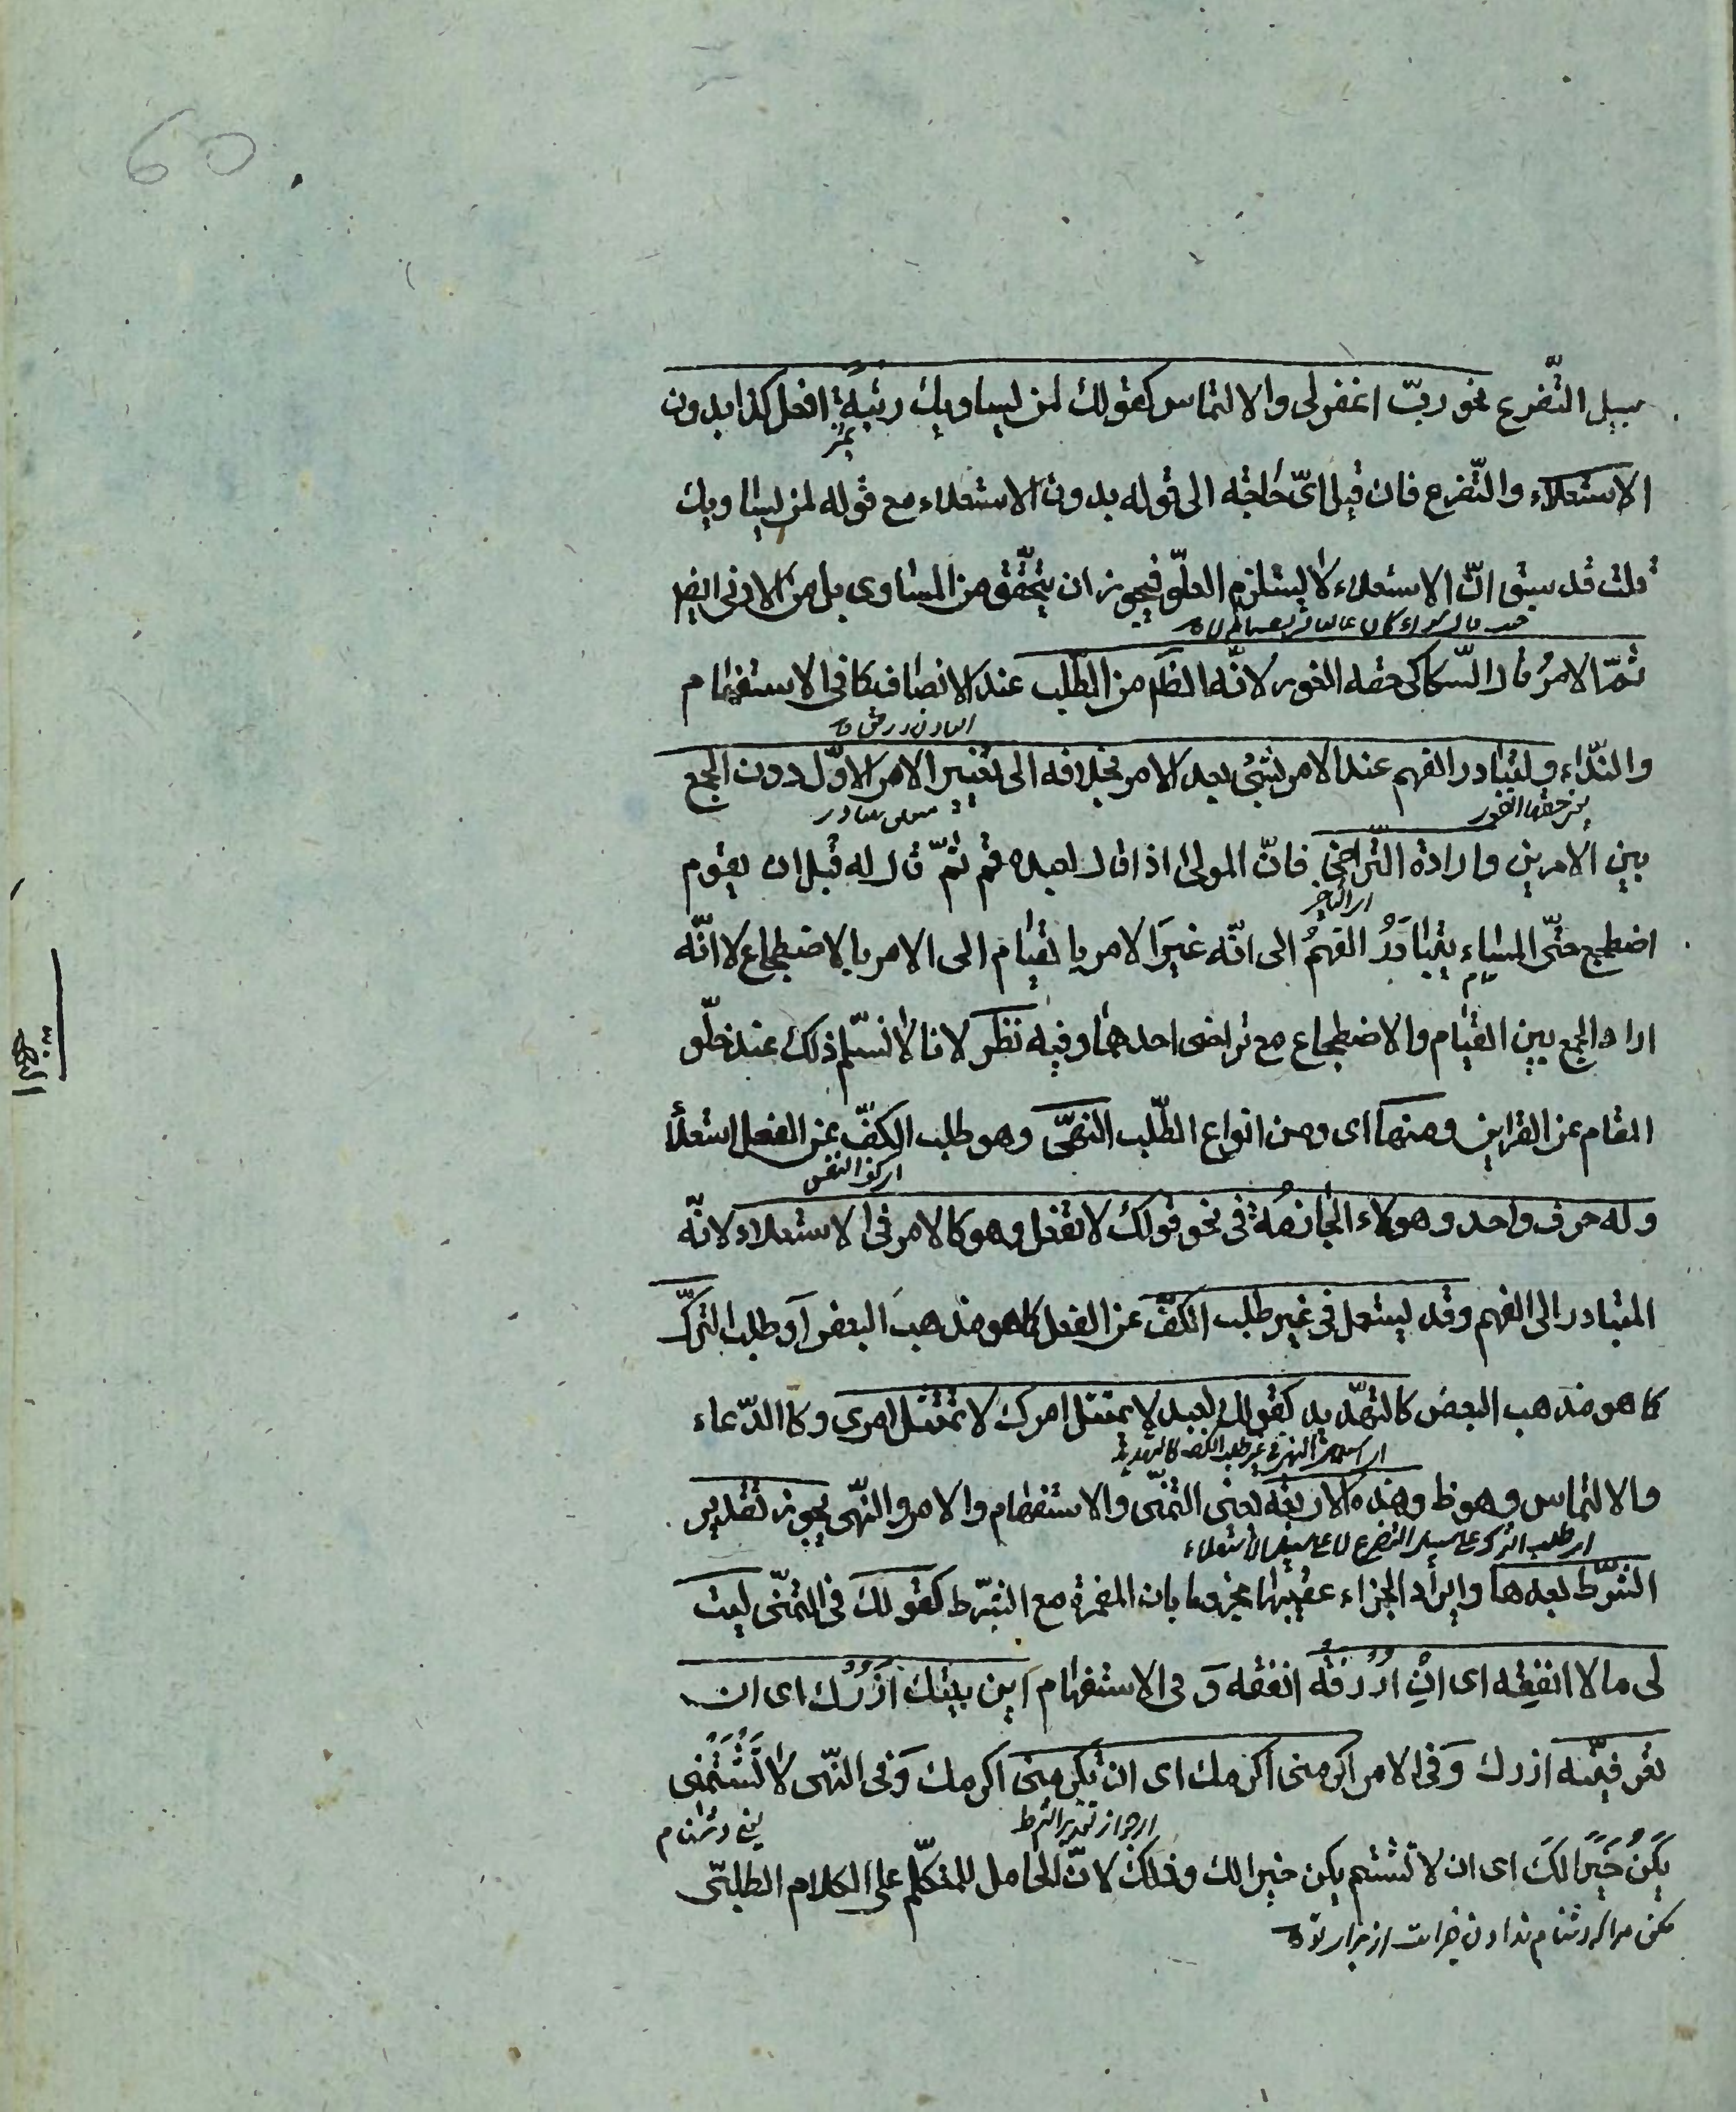 60
سبيل التّضرع نحو ربّ اغفرلى والالتماس كقولك لمن يساويك رتبةً افعل كذا بدون
الاستعلاء والتّضرع فان قيل اىّ حاجة الى قوله بدون الاستعلاء مع قوله لمن يساويك
قلت قد سبق انّ الاستعلاء لا يستلزم العلوّ فيجوز ان يتحقّق من المساوى بل من الادنى ايضا
ثمّ الامرُ قال السّكاكى حقه الفور لانّه الظّ من الطّلب عند الانصاف كما فى الاستفهام
والنّداء ولتبادر الفهم عند الامر بشئ بعد الامر بخلافه الى تغيير الامر الاوّل دون الجمع
يعنى حقها الفور
بين الامرين وارادة التّراخى فانّ المولى اذا قال لعبده قم ثمّ قال له قبل ان يقوم
اى التاخير
اضطجع حتّى المساء يتبادرُ الفهمُ الى انّه غيرَ الامر بالقيام الى الامر بالاضطجاع لا انّه
اراد الجمع بين القيام والاضطجاع مع تراخى احدهما وفيه نظر لانا لا نسلّم ذلك عند خلّو
المقام عن القراين ومنها اى ومن انواع الطّلب النهىّ وهو طلب الكفّ عن الفعل استعلأ
اى كف النفس
وله حرف واحد وهو لاء الجازمةُ فى نحو قولك لا تفعل وهو كالامر فى الاستعلاء لانّه
المتبادر الى الفهم وقد يستعمل فى غير طلب الكفّ عن الفعل كما هو مذهب البعض او طلب التركّ
كما هو مذهب البعض كالتهّديد كقولك لعبد لا يمتثل امرك لا تمتثل امرى وكالدّعاء
اى استعمال النهى فى غير طلب الكف كالتهديد
والالتماس وهو ظ وهذه الاربعة يعنى التمنّى والاستفهام والامر والنّهى يجوز تقدير
اى طلب الترك على سبيل التضرع لا على سبيل الاستعلاء
الشّرط بعدها وايراد الجزاء عقيبها مجزوما بان المضمرة مع الشّرط كقولك فى التمنّى ليت
لى مالا انفقه اى انْ ارْزقْهُ انفقه وَ فى الاستفهام اين بيتك ازُرْك اى ان
تعرفينّه ازرك وَفى الامر اكرمنى اكرمك اى ان تكرمنى اكرمك وَفى النّهى لا تَشْتُمْنى
اى جواز تقدير الشرط
يعنى دشنام
يَكنْ خَيرًا لكَ اى ان لا تشتم يكن خيرا لك وذلك لانّ الحامل للمتكلّم على الكلام الطلبىّ
مكن مرا كه دشنام ندادن خيراست از براى تو